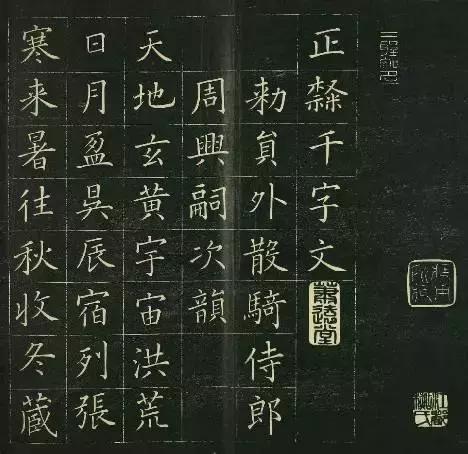 正隸千字文
勑員外散騎侍郎
周興嗣次韻
天地玄黃宇宙洪荒
日月盈昃辰宿列張
寒來暑往秋收冬藏